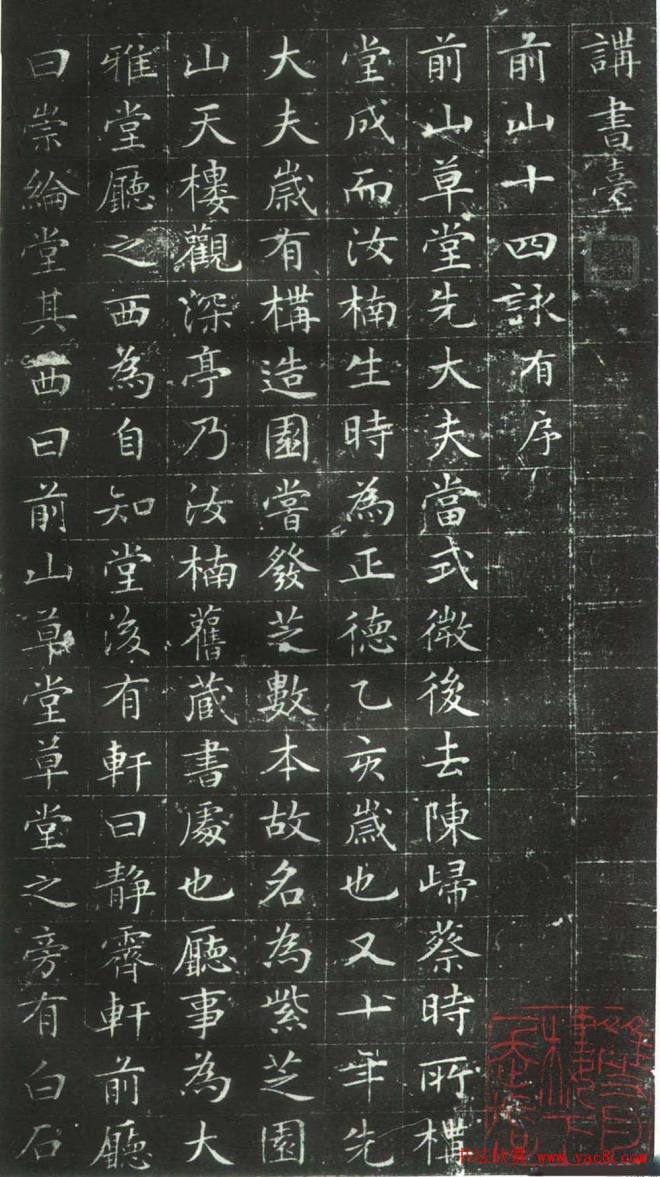 講書臺
前山十四詠有序
前山草堂先大夫當式微後去陳歸蔡時所構
堂成而汝楠生時為正德乙亥歲也又十年先
大夫歲有構造園嘗發芝數本故名為紫芝園
山天樓觀深亭乃汝楠舊藏書處也廳事為大
雅堂廳之西為自知堂後有軒曰靜霽軒前廳
曰崇綸堂其西曰前山草堂草堂之旁有白石
书法欣赏 www.yac8.com